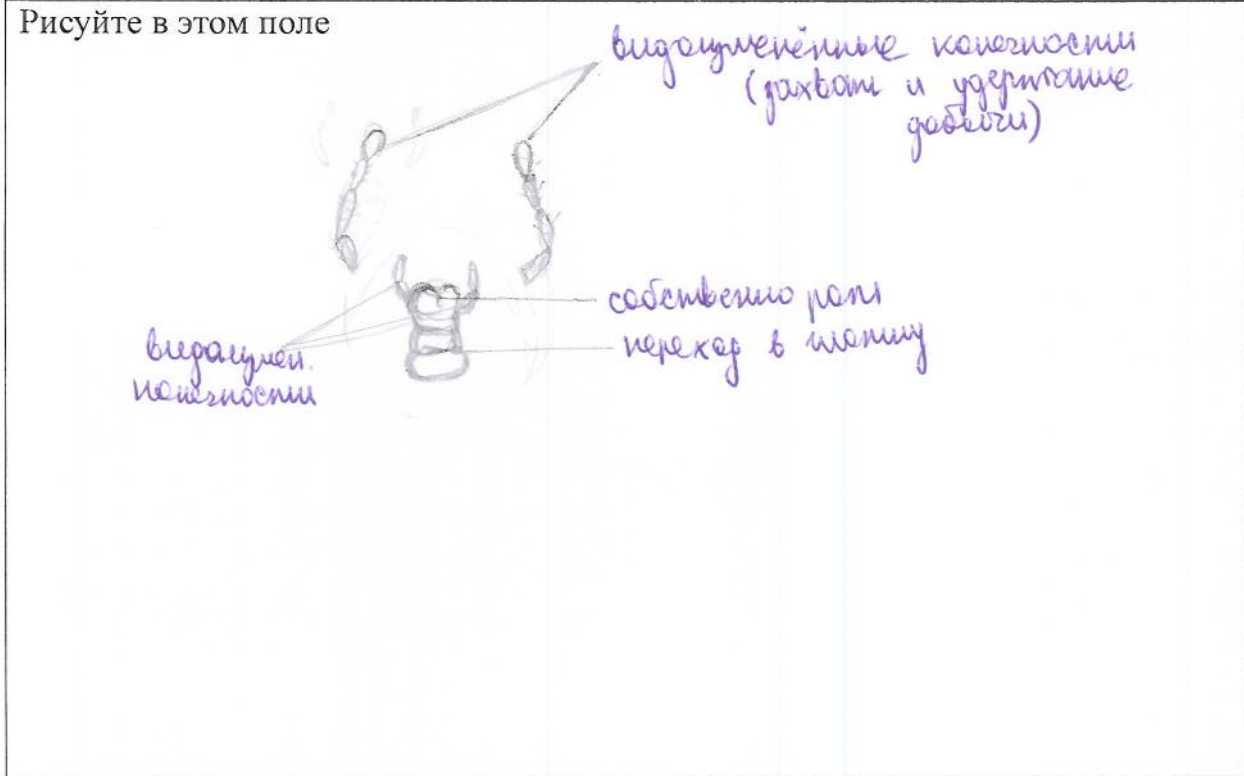 Рисуйте в этом поле
видоизменённые конечности
(захват и удержание
добычи)
собственно рот
переход в глотку
видоизмен.
конечности